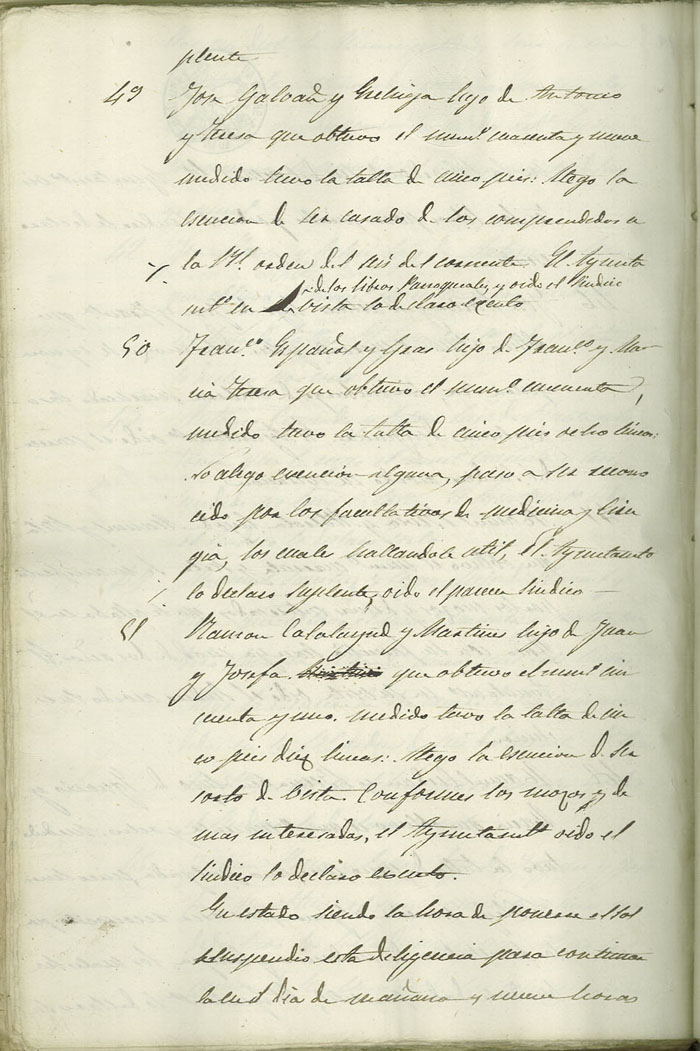 plente
49 Jose Galvañ y Grehiga hijo de Antonio
y Teresa que obtuvo el num.º cuarenta y nueve
medido tuvo la talla de cinco pies: Alego la
esencion de ser casado de los comprendidos a
la Rl. orden del seis del corriente. El Ayunta
de los libros Parroquales, y oido el Sindico
mto. en vista lo declaro exento
50 Fran.co Español y Gras hijo de Fran.co y Ma-
ria Teresa que obtuvo el num.º cincuenta,
medido tuvo la talla de cinco pies ocho lineas:
No alego esencion alguna, paso a ser recono
cido por los facultativos de medicina y ciru
gia, los cuales hallandole util, el Ayuntamto
lo declaro suplente, oido el parecer Sindico —
51 Ramon Calatayud y Martines hijo de Juan
y Josefa que obtuvo el num.º cin
cuenta y uno. medido tuvo la talla de cin
co pies diez lineas: Alego la esencion de ser
corto de vista. Conformes los mozos y de
mas interesados, el Ayuntamto oido el
Sindico lo declaro exento.
En estado siendo la hora de ponerse el Sol
se suspendio esta diligencia para continuar
la en el dia de mañana y nueve horas